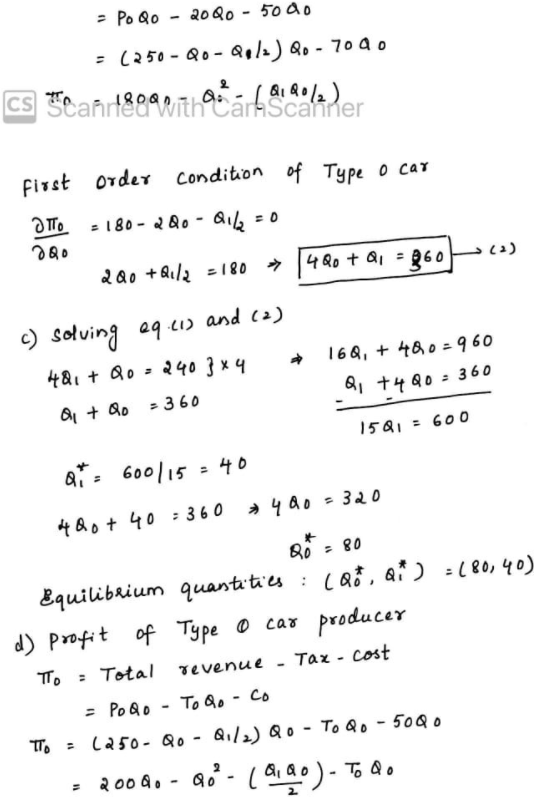 = P₀Q₀ - 20Q₀ - 50Q₀
= (250 - Q₀ - Q₁/2) Q₀ - 70Q₀
π₀ = 180Q₀ - Q₀² - (Q₁Q₀/2)
CS Scanned with CamScanner
First Order Condition of Type 0 car
∂π₀/∂Q₀ = 180 - 2Q₀ - Q₁/2 = 0
2Q₀ + Q₁/2 = 180 ⇒ 4Q₀ + Q₁ = 360 → (2)
c) Solving eq.(1) and (2)
4Q₁ + Q₀ = 240 } x 4 ⇒ 16Q₁ + 4Q₀ = 960
Q₁ + Q₀ = 360 Q₁ + 4Q₀ = 360
- -
15Q₁ = 600
Q₁* = 600/15 = 40
4Q₀ + 40 = 360 ⇒ 4Q₀ = 320
Q₀* = 80
Equilibrium quantities : (Q₀*, Q₁*) = (80, 40)
d) Profit of Type 0 car producer
π₀ = Total revenue - Tax - Cost
= P₀Q₀ - T₀Q₀ - C₀
π₀ = (250 - Q₀ - Q₁/2) Q₀ - T₀Q₀ - 50Q₀
= 200Q₀ - Q₀² - (Q₁Q₀/2) - T₀Q₀